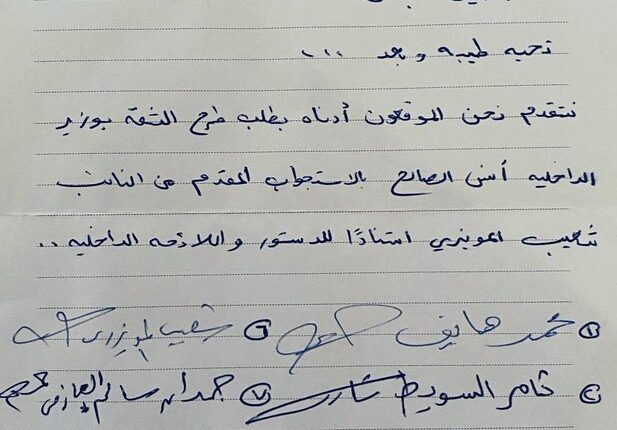 تحيه طيبه وبعد ....
نتقدم نحن الموقعون أدناه بطلب طرح الثقة بوزير
الداخليه أنس الصالح بالاستجواب المقدم من النائب
شعيب المويزري استنادًا للدستور واللائحه الداخليه ..
① محمد هايف ③ شعيب المويزري
② ثامر السويط حمدان سالم العازمي